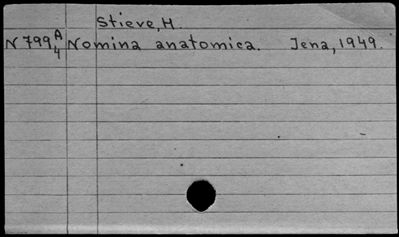 Stieve, H.
N 799 A/4 Nomina anatomica. Jena, 1949.